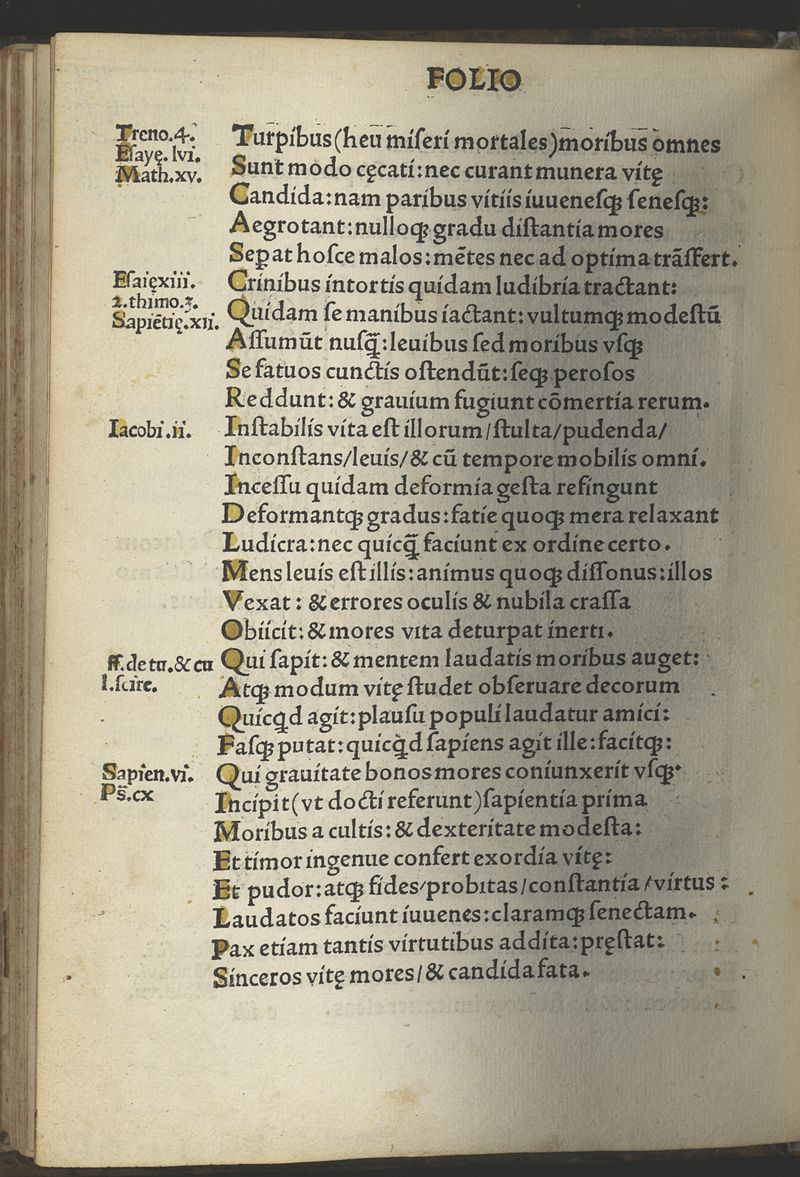 FOLIO
Treno.4.
Eſayę.lvi.
Math.xv.
Turpibus(heu miſeri mortales)moribus omnes
Sunt modo cęcati:nec curant munera vitę
Candida:nam paribus vitiis iuueneſqꝫ ſeneſqꝫ:
Aegrotant:nulloqꝫ gradu diſtantia mores
Sepat hoſce malos:mētes nec ad optima trāſfert.
Eſaięxiii.
2.thimo.3.
Sapiētię.xii.
Crinibus intortis quidam ludibria tractant:
Quidam ſe manibus iactant:vultumqꝫ modeſtū
Aſſumūt nuſq̄:leuibus ſed moribus vſqꝫ
Se fatuos cunctis oſtendūt:ſeqꝫ peroſos
Reddunt:& grauium fugiunt cōmertia rerum.
Iacobi.ii.
Inſtabilis vita eſt illorum/ſtulta/pudenda/
Inconſtans/leuis/& cū tempore mobilis omni.
Inceſſu quidam deformia geſta refingunt
Deformantqꝫ gradus:fatie quoqꝫ mera relaxant
Ludicra:nec quicq̄ faciunt ex ordine certo.
Mens leuis eſt illis:animus quoqꝫ diſſonus:illos
Vexat: & errores oculis & nubila craſſa
Obiicit:& mores vita deturpat inerti.
ff.de tu.&cu
l.ſcire.
Qui ſapit:& mentem laudatis moribus auget:
Atqꝫ modum vitę ſtudet obſeruare decorum
Quicqd agit:plauſu populi laudatur amici:
Faſqꝫ putat:quicqd ſapiens agit ille:facitqꝫ:
Sapien.vi.
Pſ̄.cx
Qui grauitate bonos mores coniunxerit vſqꝫ
Incipit(vt docti referunt)ſapientia prima
Moribus a cultis:& dexteritate modeſta:
Et timor ingenue confert exordia vitę:
Et pudor:atqꝫ fides/probitas/conſtantia/virtus:
Laudatos faciunt iuuenes:claramqꝫ ſenectam.
Pax etiam tantis virtutibus addita:pręſtat:
Sinceros vitę mores/& candida fata.